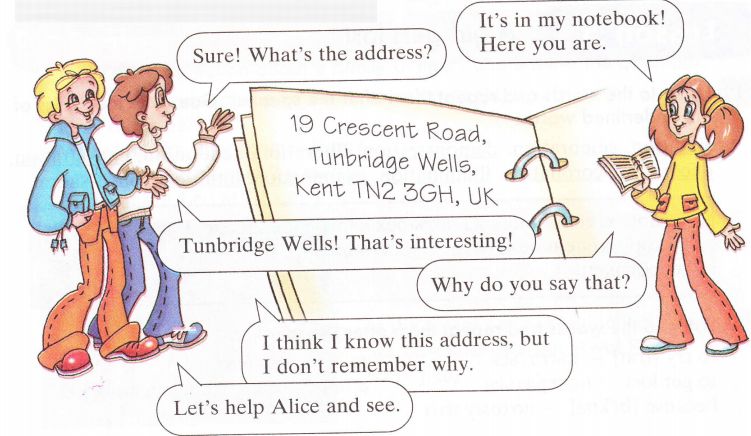 It's in my notebook!
Here you are.
Sure! What's the address?
19 Crescent Road,
Tunbridge Wells,
Kent TN2 3GH, UK
Tunbridge Wells! That's interesting!
Why do you say that?
I think I know this address, but
I don't remember why.
Let's help Alice and see.